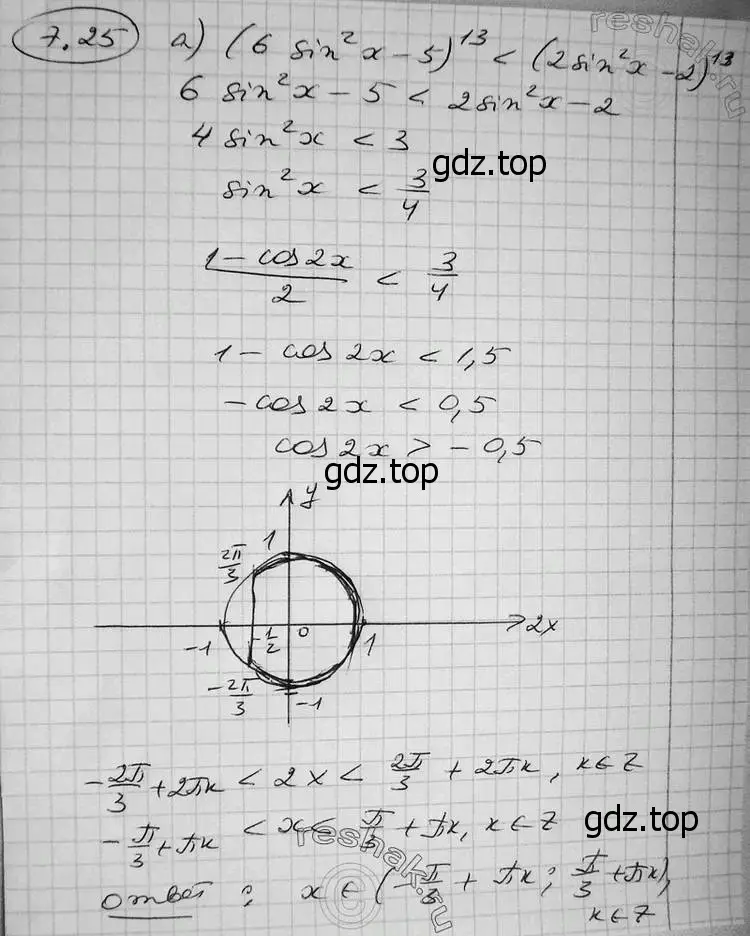 7.25 а) (6 sin²x − 5)¹³ < (2sin²x − 2)¹³
6 sin²x − 5 < 2sin²x − 2
4 sin²x < 3
gdz.top
sin²x < 3/4
(1 − cos2x)/2 < 3/4
1 − cos 2x < 1,5
−cos 2x < 0,5
cos 2x > − 0,5
gdz.top
y
1
2π/3
−1 −1/2 0 1 2x
−2π/3
−1
−2π/3 + 2πк < 2x < 2π/3 + 2πк, к∈Z
−π/3 + πк < x < π/3 + πк, к∈Z
ответ : x ∈ (−π/3 + πк ; π/3 + πк),
к∈Z
reshak.ru
reshak.ru
reshak.ru